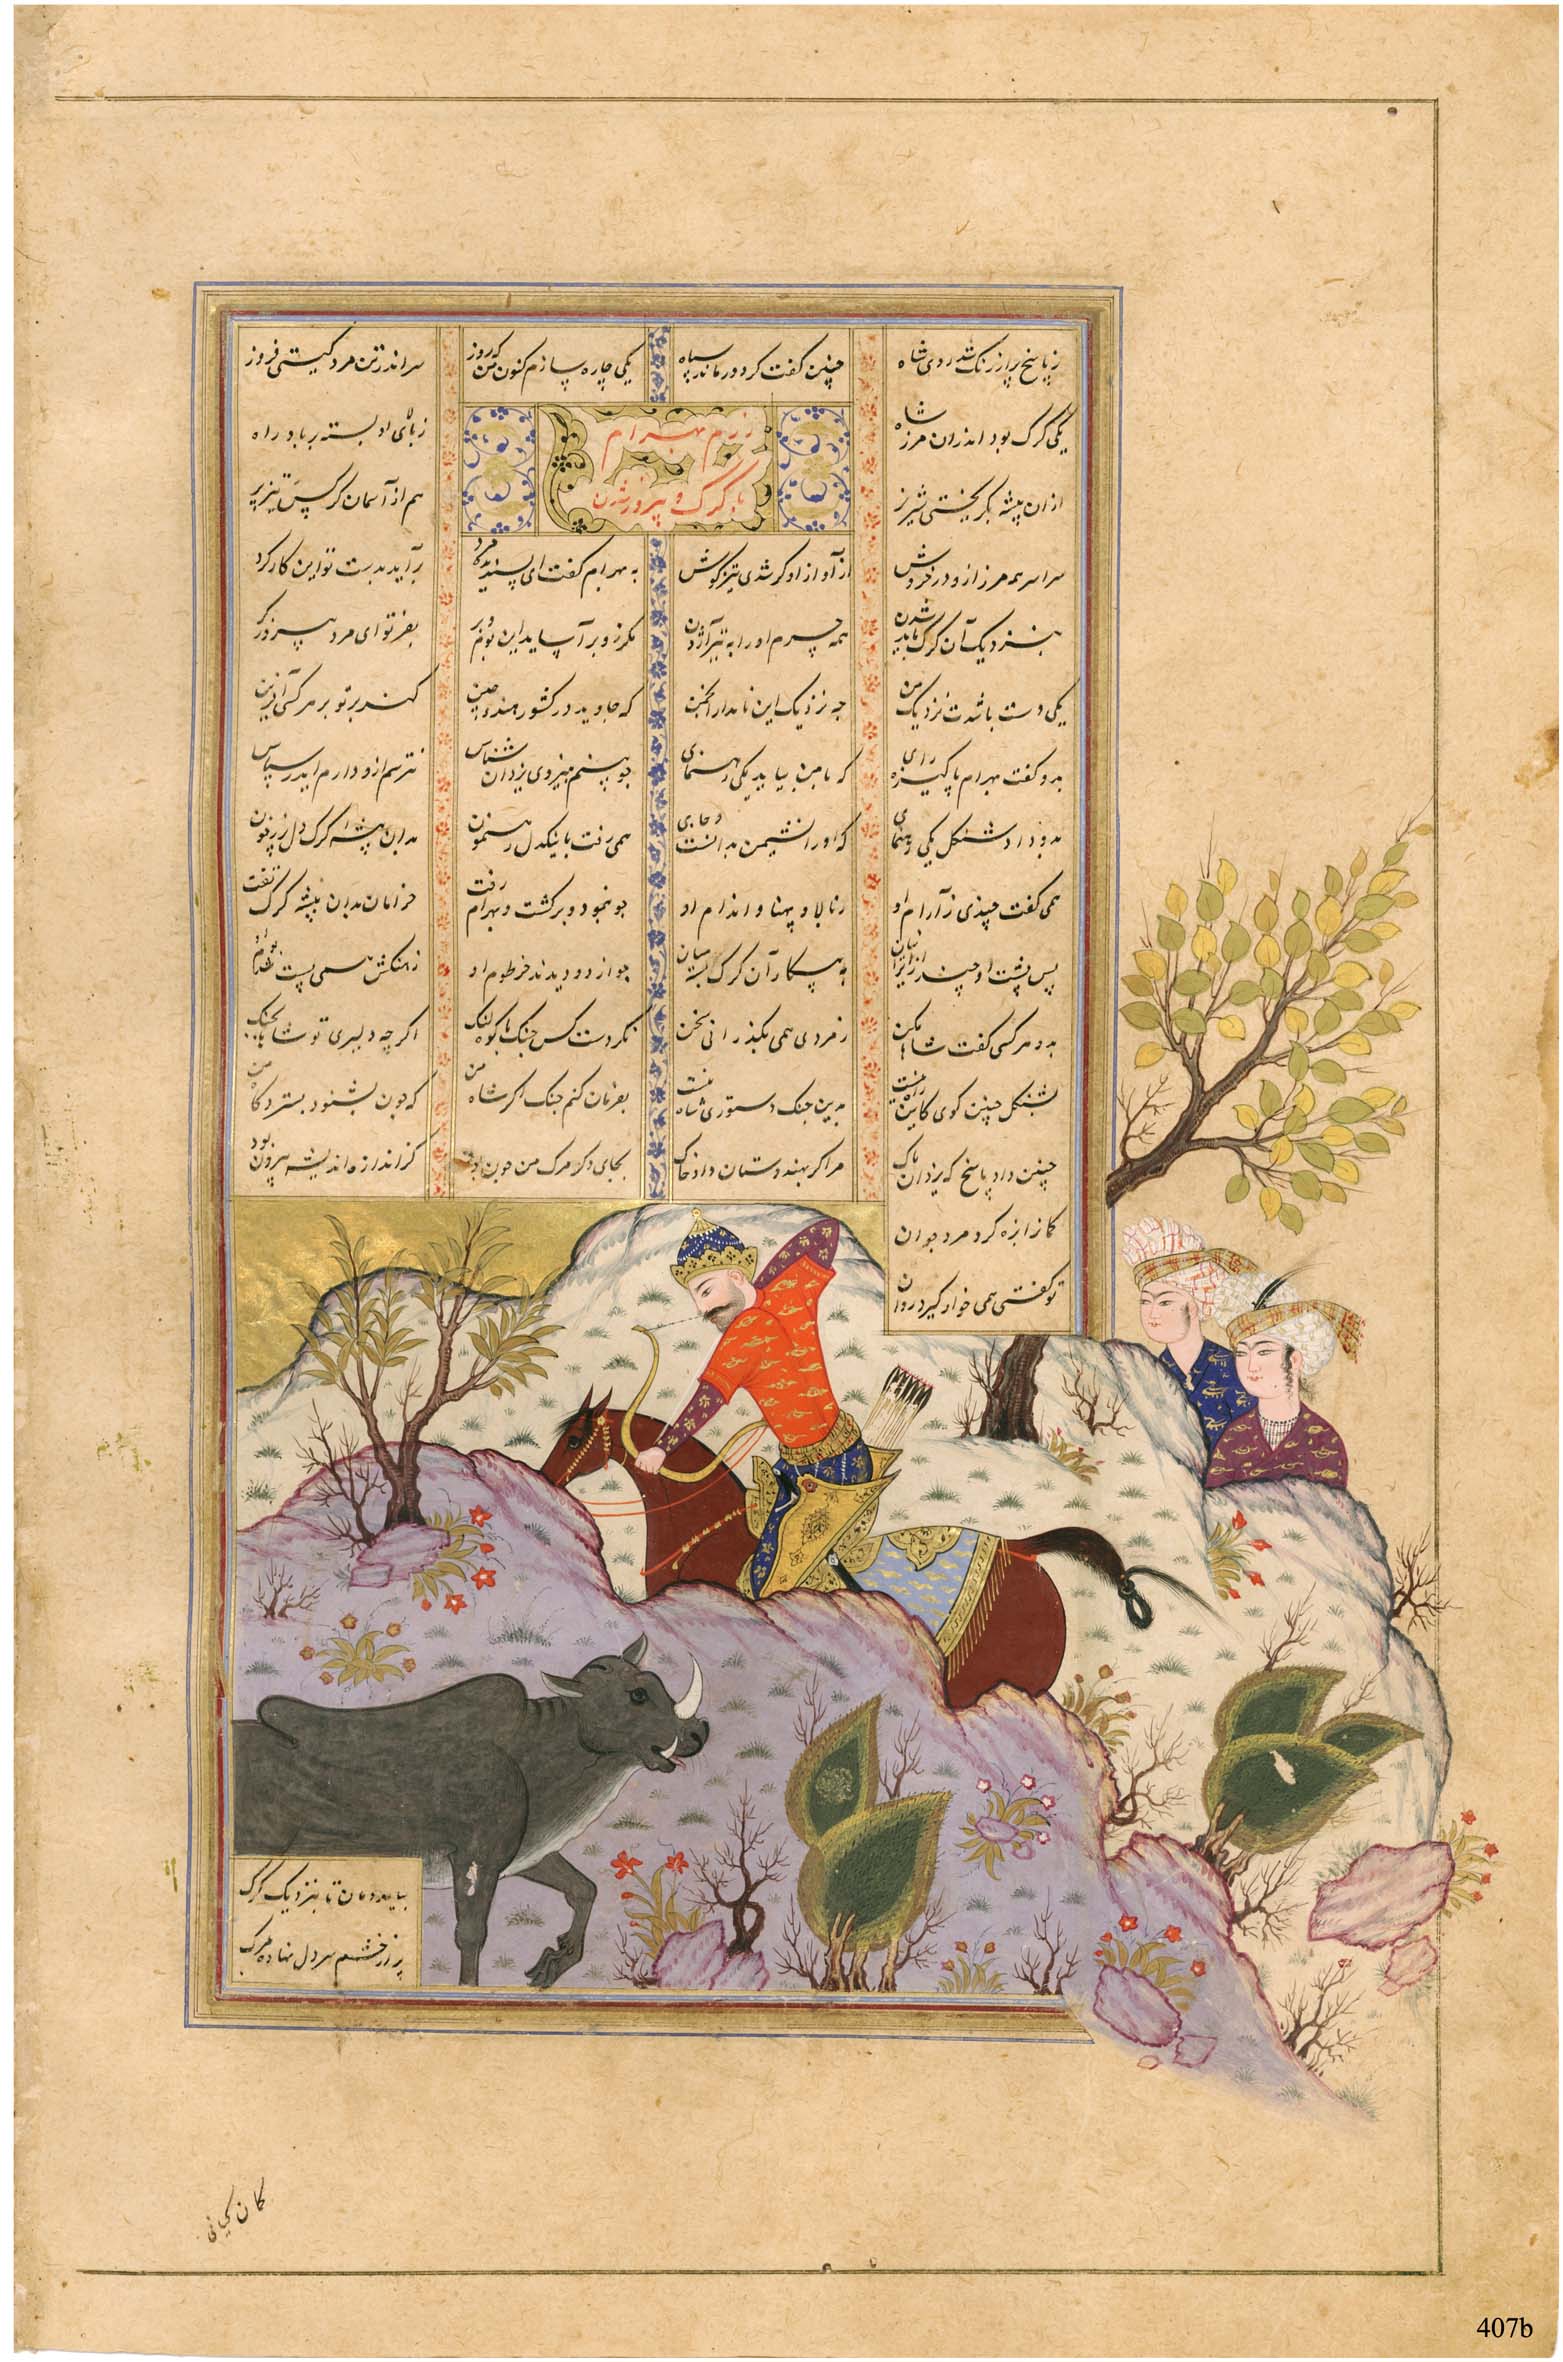 ز پاسخ پر از رنگ شد روی شاه چنین گفت کردور ماند سپاه یکی چاره سازم کنون من که روز سر اندر تن مرد گیتی فروز
رزم بهرام
با کرگ و پیروز شدن
یکی کرگ بود اندران مرز شاه ز بالای او بسته بر باد راه
ازان بیشه بگریختی شیر نر هم از آسمان کرکس تیز پر
سراسر همه مرز ازو در خروش از آواز او کر شدی تیز گوش به بهرام گفت ای پسندیده مرد برآید بدست تو این کارکرد
بنزدیک آن کرگ باید شدن همه چرم او را به تیر آژدن مگر زو بر آساید این بوم و بر بفر تو ای مرد پیروزگر
یکی دست باشدت نزدیک من چه نزدیک این نامدار انجمن که جاوید در کشور هند و چین کنند بر تو بر هر کسی آفرین
بدو گفت بهرام پاکیزه رای که با من بیاید یکی رهنمای چو بینم بنیروی یزدان شناس نترسم ازو دارم ایدر سپاس
بدو داد شنگل یکی رهنمای که او را نشیمن بدانست و جای همی رفت با نیکدل رهنمون بدان بیشه کرگ دل پر ز خون
همی گفت چندی ز آرام او ز بالا و پهنا و اندام او چو بنمود و برگشت و بهرام رفت خرامان بدان بیشه کرگ تفت
پس پشت او چند از ایرانیان به پیکار آن کرگ بسته میان چو از دور دیدند خرطوم او ز هنگش همی پست شد بوم او
بدو هر کسی گفت شاها مکن ز مردی همی بگذرانی سخن نکردست کس جنگ با کوه اگر چه دلیری تو شاها بجنگ
بشنگل چنین گوی کاین راه نیست بدین جنگ دستوری شاه نیست بفرمان کنم جنگ اگر شاه من که چون بشنود بسترد گاه من
چنین داد پاسخ که یزدان پاک مرا گر بهندوستان داد خاک بجای دگر مرگ من چون بود کز اندازه اندیشه بیرون بود
کمان را بزه کرد مرد جوان
تو گفتی همی خوار گیرد روان
بیامد دمان تا بنزدیک کرگ
پر از خشم سر دل نهاده بمرگ
کمان کیانی
407b